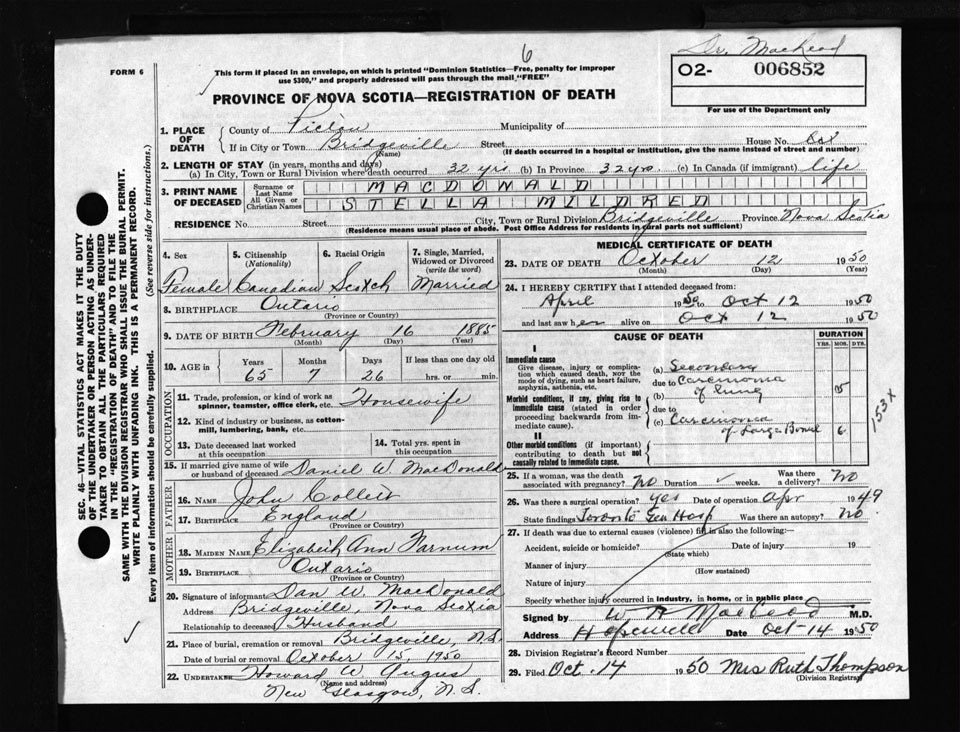 6
Dr. MacLeod
FORM 6
This form if placed in an envelope, on which is printed "Dominion Statistics—Free, penalty for improper
use $300," and properly addressed will pass through the mail "FREE"
02- 006852
For use of the Department only
PROVINCE OF NOVA SCOTIA—REGISTRATION OF DEATH
1. PLACE OF DEATH { County of Pictou Municipality of
If in City or Town Bridgeville Street House No.
(Name) (If death occurred in a hospital or institution, give the name instead of street and number)
2. LENGTH OF STAY (in years, months and days)
(a) In City, Town or Rural Division where death occurred 32 yrs (b) In Province 32 yrs (c) In Canada (if immigrant) life
3. PRINT NAME OF DECEASED { Surname or Last Name MACDONALD
All Given or Christian Names STELLA MILDRED
RESIDENCE No. Street City, Town or Rural Division Bridgeville Province Nova Scotia
(Residence means usual place of abode. Post Office Address for residents in rural parts not sufficient)
4. Sex 5. Citizenship (Nationality) 6. Racial Origin 7. Single, Married, Widowed or Divorced (write the word)
Female Canadian Scotch Married
8. BIRTHPLACE Ontario
(Province or Country)
9. DATE OF BIRTH February 16 1885
(Month) (Day) (Year)
10. AGE in { Years Months Days If less than one day old
65 7 26 hrs. or min.
OCCUPATION
11. Trade, profession or kind of work as spinner, teamster, office clerk, etc. Housewife
12. Kind of industry or business, as cotton-mill, lumbering, bank, etc.
13. Date deceased last worked at this occupation 14. Total yrs. spent in this occupation
15. If married give name of wife or husband of deceased Daniel W. MacDonald
FATHER
16. NAME John
17. BIRTHPLACE England
(Province or Country)
MOTHER
18. MAIDEN NAME Elizabeth Ann Farnum
19. BIRTHPLACE Ontario
(Province or Country)
20. Signature of informant Dan W. MacDonald
Address Bridgeville, Nova Scotia
Relationship to deceased Husband
21. Place of burial, cremation or removal Bridgeville, N.S.
Date of burial or removal October 15, 1950
22. UNDERTAKER Howard W. Angus
(Name and address)
New Glasgow, N.S.
MEDICAL CERTIFICATE OF DEATH
23. DATE OF DEATH October 12 1950
(Month) (Day) (Year)
24. I HEREBY CERTIFY that I attended deceased from:
April 1950 to Oct 12 1950
and last saw her alive on Oct 12 1950
CAUSE OF DEATH DURATION
YRS. MOS. DYS.
I
Immediate cause
Give disease, injury or complication which caused death, not the mode of dying, such as heart failure, asphyxia, asthenia, etc.
(a) Secondary
due to Carcinoma
(b) of lung
Morbid conditions, if any, giving rise to immediate cause (stated in order proceeding backwards from immediate cause).
due to
(c) Carcinoma
of Large Bowel 6
153X
II
Other morbid conditions (if important) contributing to death but not causally related to immediate cause.
25. If a woman, was the death associated with pregnancy? No Duration weeks. Was there a delivery? No
26. Was there a surgical operation? yes Date of operation Apr 1949
State findings Toronto Gen Hosp Was there an autopsy? No
27. If death was due to external causes (violence) fill in also the following:—
Accident, suicide or homicide? Date of injury 19
(State which)
Manner of injury
(How sustained)
Nature of injury
Specify whether injury occurred in industry, in home, or in public place
Signed by W A MacLeod M.D.
Address Hopewell Date Oct-14 1950
28. Division Registrar's Record Number
29. Filed Oct. 14 1950 Mrs Ruth Thompson
(Division Registrar)
SEC. 46—VITAL STATISTICS ACT MAKES IT THE DUTY
OF THE UNDERTAKER OR PERSON ACTING AS UNDER-
TAKER TO OBTAIN ALL THE PARTICULARS REQUIRED
IN THE "REGISTRATION OF DEATH" AND TO FILE THE
SAME WITH THE DIVISION REGISTRAR WHO SHALL ISSUE THE BURIAL PERMIT.
WRITE PLAINLY WITH UNFADING INK. THIS IS A PERMANENT RECORD.
Every item of information should be carefully supplied. (See reverse side for instructions.)